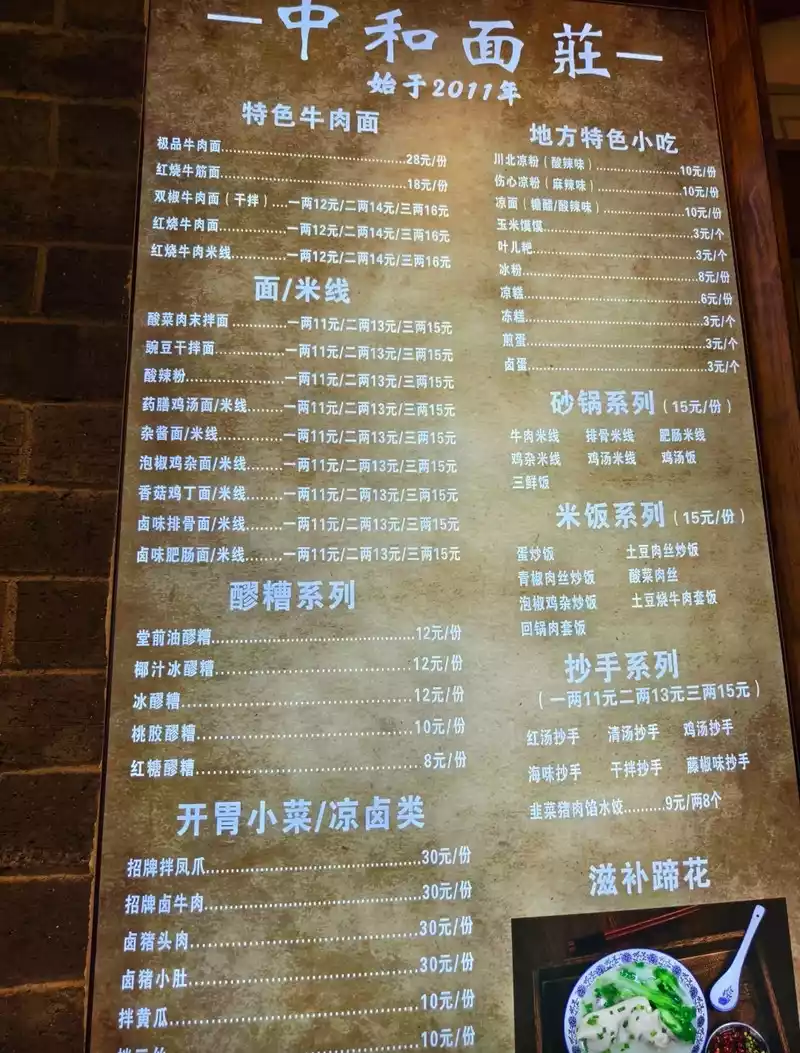 中和面莊
始于2011年
特色牛肉面
极品牛肉面........28元/份
红烧牛筋面........18元/份
双椒牛肉面（干拌）...一两12元/二两14元/三两16元
红烧牛肉面........一两12元/二两14元/三两16元
红烧牛肉米线......一两12元/二两14元/三两16元
面/米线
酸菜肉末拌面......一两11元/二两13元/三两15元
豌豆干拌面........一两11元/二两13元/三两15元
酸辣粉............一两11元/二两13元/三两15元
药膳鸡汤面/米线......一两11元/二两13元/三两15元
杂酱面/米线..........一两11元/二两13元/三两15元
泡椒鸡杂面/米线......一两11元/二两13元/三两15元
香菇鸡丁面/米线......一两11元/二两13元/三两15元
卤味排骨面/米线......一两11元/二两13元/三两15元
卤味肥肠面/米线......一两11元/二两13元/三两15元
醪糟系列
堂前油醪糟........12元/份
椰汁冰醪糟........12元/份
冰醪糟............12元/份
桃胶醪糟..........10元/份
红糖醪糟..........8元/份
开胃小菜/凉卤类
招牌拌凤爪........30元/份
招牌卤牛肉........30元/份
卤猪头肉..........30元/份
卤猪小肚..........30元/份
拌黄瓜............10元/份
10元/份
地方特色小吃
川北凉粉（酸辣味）........10元/份
伤心凉粉（麻辣味）........10元/份
凉面（糖醋/酸辣味）........10元/份
玉米馍馍........3元/个
叶儿粑..........3元/个
冰粉............8元/份
凉糕............6元/份
冻糕............3元/个
煎蛋............3元/个
卤蛋............3元/个
砂锅系列（15元/份）
牛肉米线 排骨米线 肥肠米线
鸡杂米线 鸡汤米线 鸡汤饭
三鲜饭
米饭系列（15元/份）
蛋炒饭 土豆肉丝炒饭
青椒肉丝炒饭 酸菜肉丝
泡椒鸡杂炒饭 土豆烧牛肉套饭
回锅肉套饭
抄手系列
（一两11元二两13元三两15元）
红汤抄手 清汤抄手 鸡汤抄手
海味抄手 干拌抄手 藤椒味抄手
韭菜猪肉馅水饺.........9元/两8个
滋补蹄花